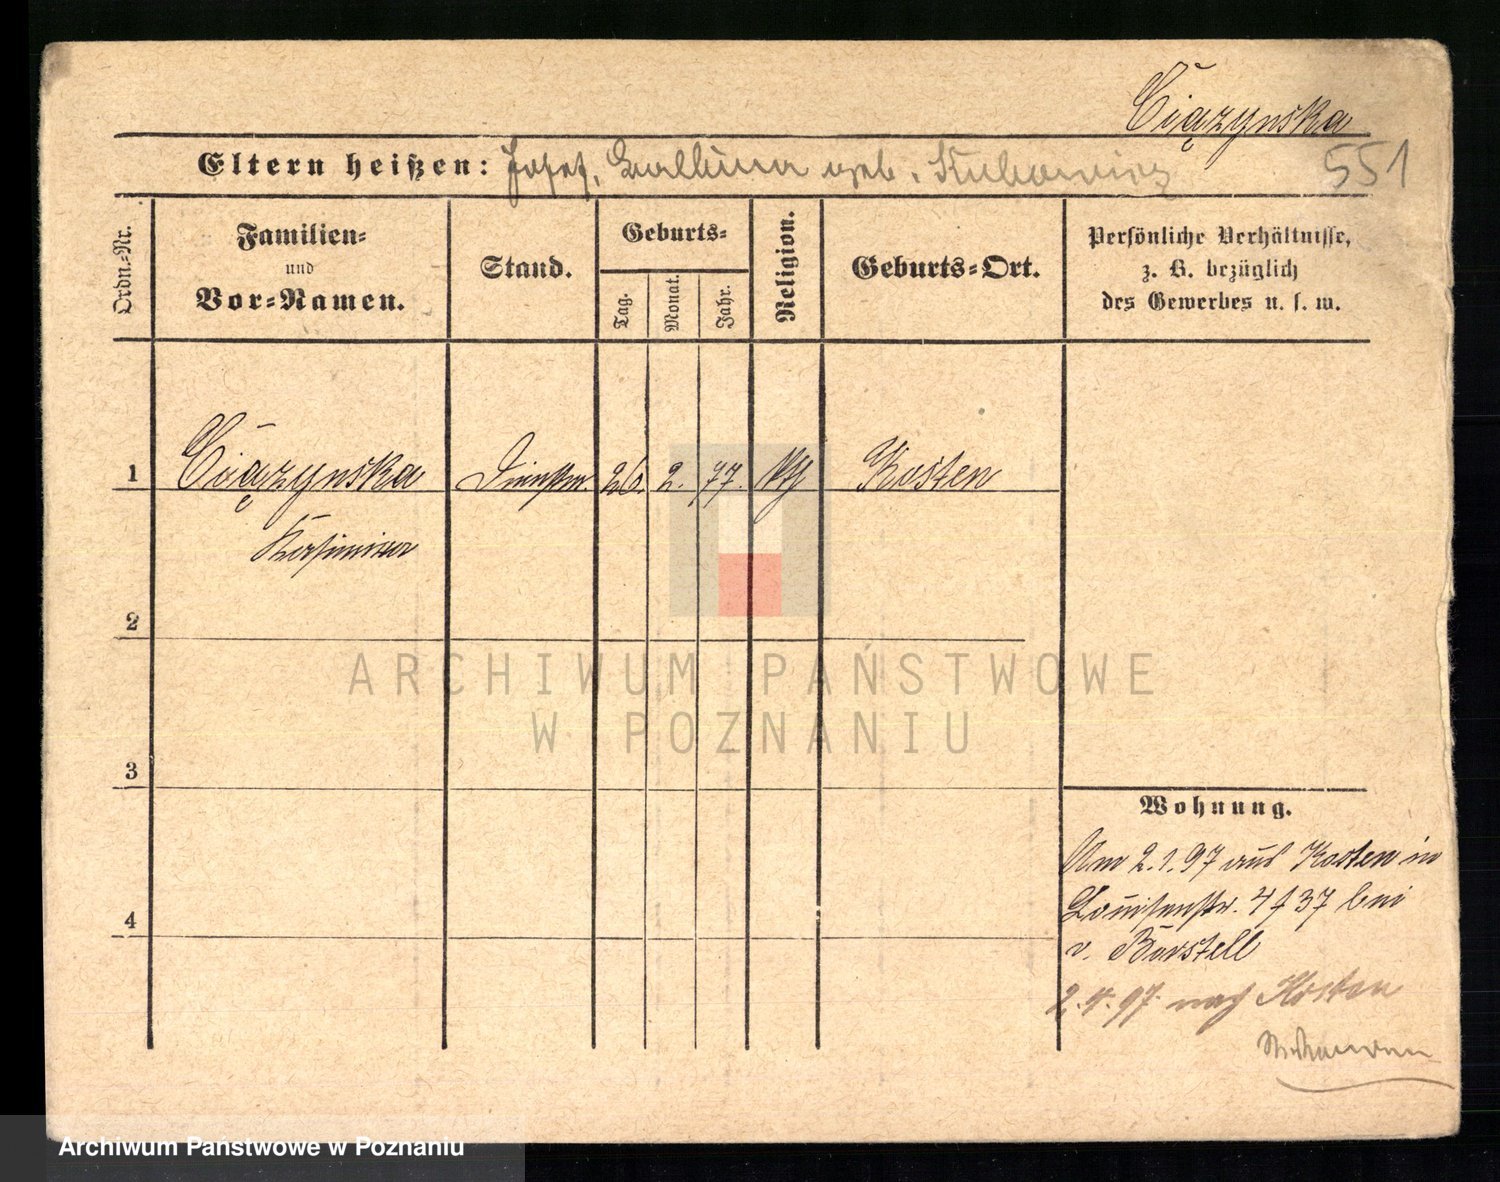 Ciążynska
Eltern heißen: Josef, geb. 551
Ordn.-Nr.
Familien-
und
Vor-Namen.
Stand.
Geburts-
Tag.
Monat.
Jahr.
Religion.
Geburts-Ort.
Persönliche Verhältnisse,
z. B. bezüglich
des Gewerbes u. s. w.
1 Ciążynska 26. 2. 77. Kosten
Kasimira
2
ARCHIWUM PAŃSTWOWE
W POZNANIU
3
Wohnung.
Am 2.1.97 aus Kosten in
Louisenstr. bei
v. Borstell
4
2.4.97. nach Kosten
Archiwum Państwowe w Poznaniu